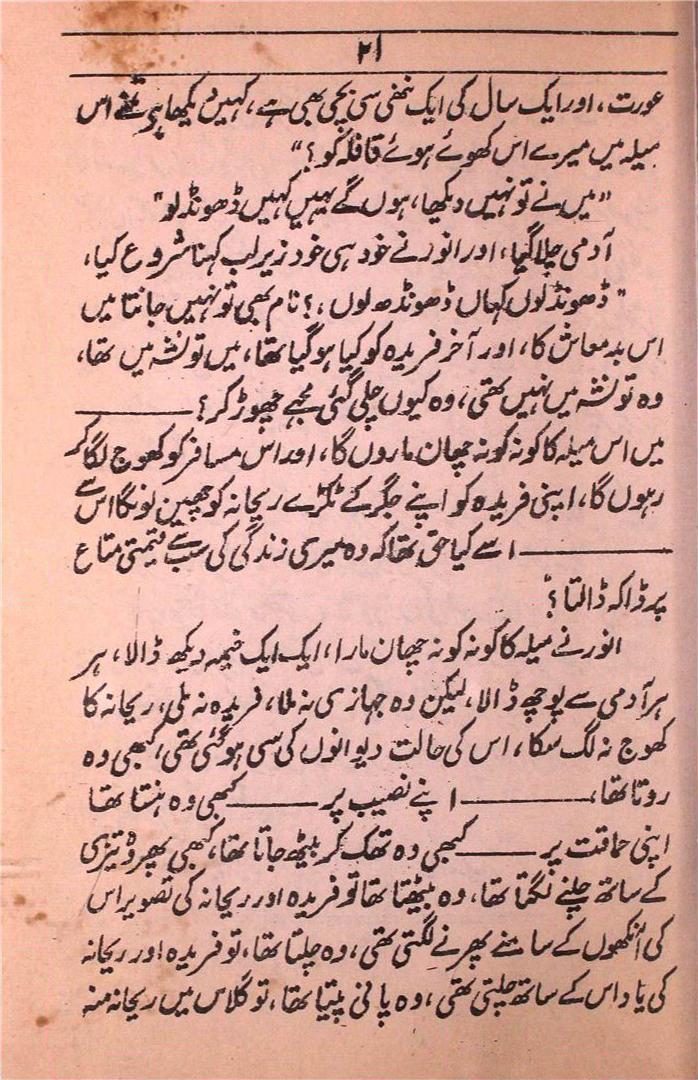 ۲۱
عورت، اور ایک سال کی ایک ننھی سی بچی بھی ہے، کہیں دیکھا ہو تم نے اس
میلہ میں میرے اس کھوئے ہوئے قافلہ کو؟“
”میں نے تو نہیں دیکھا، ہوں گے یہیں کہیں ڈھونڈ لو“
آدمی چلا گیا، اور انور نے خود ہی خود زیر لب کہنا شروع کیا،
”ڈھونڈ لوں کہاں ڈھونڈھ لوں،؟ نام بھی تو نہیں جانتا میں
اس بدمعاش کا، اور آخر فریدہ کو کیا ہو گیا تھا، میں تو نشہ میں تھا،
وہ تو نشہ میں نہیں تھی، وہ کیوں چلی گئی مجھے چھوڑ کر؟ ــــــــــــ
میں اس میلہ کا کونہ کونہ چھان ماروں گا، اور اس مسافر کو کھوج لگا کر
رہوں گا، اپنی فریدہ کو اپنے جگر کے ٹکڑے ریحانہ کو چھین لونگا اس سے
ــــــــــــ اسے کیا حق تھا کہ وہ میری زندگی کی سب سے قیمتی متاع
پر ڈاکہ ڈالتا؟
انور نے میلہ کا کونہ کونہ چھان مارا، ایک ایک خیمہ دیکھ ڈالا، ہر
ہر آدمی سے پوچھ ڈالا، لیکن وہ جہازی نہ ملا، فریدہ نہ ملی، ریحانہ کا
کھوج نہ لگ سکا، اس کی حالت دیوانوں کی سی ہو گئی تھی، کبھی وہ
روتا تھا، ــــــــــــ اپنے نصیب پر ــــــــــــ کبھی وہ ہنستا تھا
اپنی حماقت پر ــــــــــــ کبھی وہ تھک کر بیٹھ جاتا تھا، کبھی پھر وہ تیزی
کے ساتھ چلنے لگتا تھا، وہ بیٹھتا تھا تو فریدہ اور ریحانہ کی تصویر اس
کی آنکھوں کے سامنے پھرنے لگتی تھی، وہ چلتا تھا، تو فریدہ اور ریحانہ
کی یاد اس کے ساتھ چلتی تھی، وہ پانی پیتا تھا، تو گلاس میں ریحانہ منہ